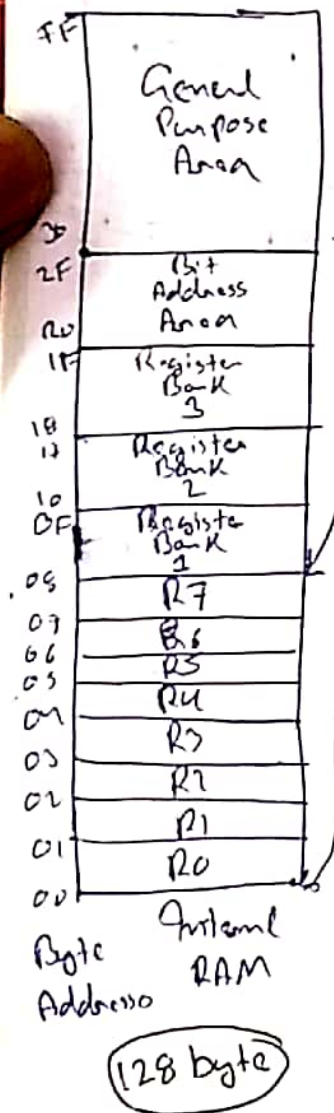 7F
General
Purpose
Area
30
2F
Bit
Address
Area
20
1F
Register
Bank
3
18
17
Register
Bank
2
10
0F
Register
Bank
1
08
R7
07
R6
06
R5
05
R4
04
R3
03
R2
02
R1
01
R0
00
Byte
Address
Internal
RAM
128 byte